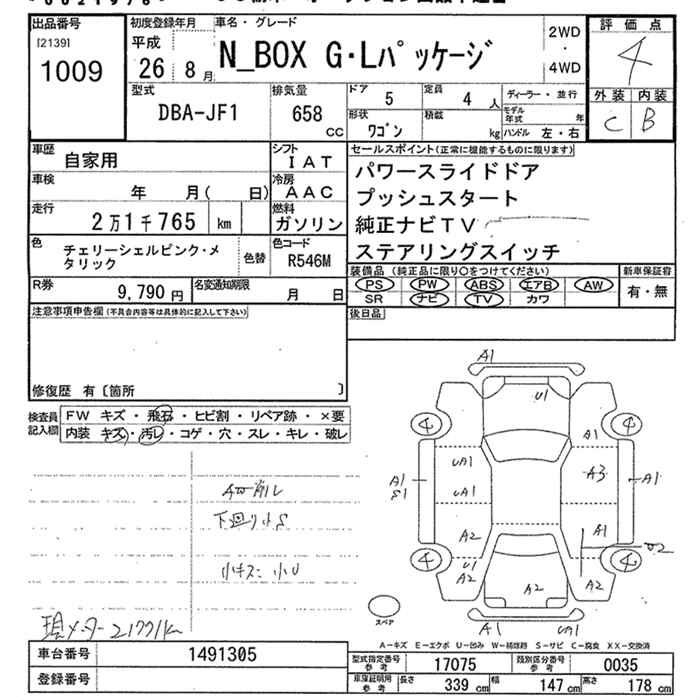 出品番号
[2139]
1009
初度登録年月
平成
26年 8月
車名・グレード
N_BOX G・Lパッケージ
2WD
・
4WD
評価点
4
外装 内装
C B
型式
DBA-JF1
排気量
658
CC
ドア
5
定員
4 人
ディーラー・並行
モデル年式 年
形状
ワゴン
積載
kg
ハンドル 左・右
車歴
自家用
シフト
IAT
車検
年 月( 日)
冷房
AAC
走行
2万1千765 km
燃料
ガソリン
色
チェリーシェルピンク・メ
タリック
色替
色コード
R546M
R券
9,790 円
名変通知期限
月 日
セールスポイント(正常に機能するものに限ります)
パワースライドドア
プッシュスタート
純正ナビTV
ステアリングスイッチ
装備品 (純正品に限り○をつけてください)
PS PW ABS エアB AW
SR ナビ TV カワ
新車保証書
有・無
後日品
注意事項申告欄(不具合内容等は具体的に記入して下さい)
修復歴 有〔箇所 〕
検査員
記入欄
FW キズ・飛石・ヒビ割・リペア跡・×要
内装 キズ・汚レ・コゲ・穴・スレ・キレ・破レ
下廻り小S
小キズ 小U
現メーター21771km
A1
U1
4
4
A1
UA1
A3
A1
S1
A1
UA1
A1
A2
U2
4
4
U1
A2
A2
A2
スペア
A1
UA1
A-キズ E-エクボ U-凹み W-補修跡 S-サビ C-腐食 XX-交換済
車台番号
1491305
登録番号
型式指定番号
参考
17075
類別区分番号
参考
0035
車庫証明用
参考
長さ 339 cm 幅 147 cm 高さ 178 cm